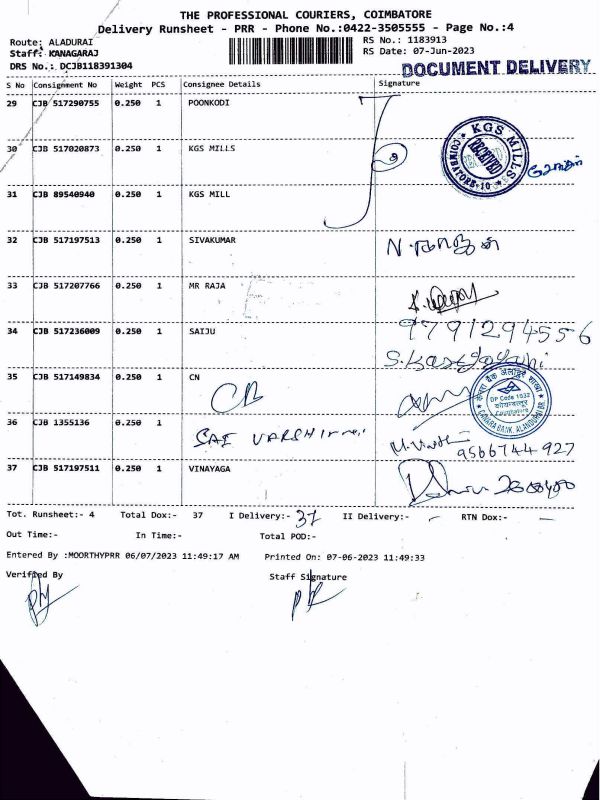 THE PROFESSIONAL COURIERS, COIMBATORE
Delivery Runsheet - PRR - Phone No.:0422-3505555 - Page No.:4
Route: ALADURAI
RS No.: 1183913
Staff: KANAGARAJ
RS Date: 07-Jun-2023
DRS No.: DCJB118391304
DOCUMENT DELIVERY
S No Consignment No Weight PCS Consignee Details Signature
29 CJB 517290755 0.250 1 POONKODI
30 CJB 517020873 0.250 1 KGS MILLS
KGS MILLS
RECEIVED
COIMBATORE-10
31 CJB 89540940 0.250 1 KGS MILL
32 CJB 517197513 0.250 1 SIVAKUMAR
33 CJB 517207766 0.250 1 MR RAJA
34 CJB 517236009 0.250 1 SAIJU
9791294556
35 CJB 517149834 0.250 1 CN
CB
DP Code 1532
CANARA BANK, ALANDURAI BR.
36 CJB 1355136 0.250 1
SAI VARSHI
9566744927
37 CJB 517197511 0.250 1 VINAYAGA
Tot. Runsheet:- 4 Total Dox:- 37 I Delivery:- 37 II Delivery:- - RTN Dox:- -
Out Time:- In Time:- Total POD:-
Entered By :MOORTHYPRR 06/07/2023 11:49:17 AM Printed On: 07-06-2023 11:49:33
Verified By Staff Signature